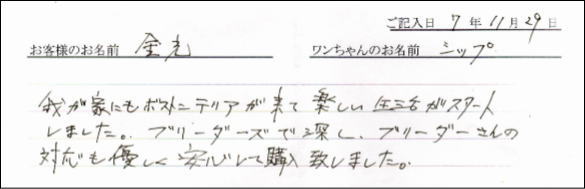 ご記入日 7 年 11 月 29 日
お客様のお名前 金光 ワンちゃんのお名前 シップ
我が家にもボストンテリアが来て楽しい生活がスタート
しました。ブリーダーズで探し、ブリーダーさんの
対応も優しく安心して購入致しました。